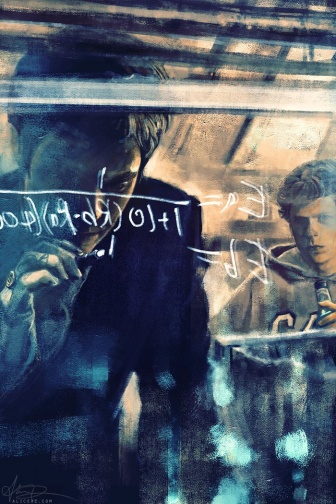 Ea = 1
1+10(Rb-Ra)/400
Eb = 1
ALICEXZ.COM